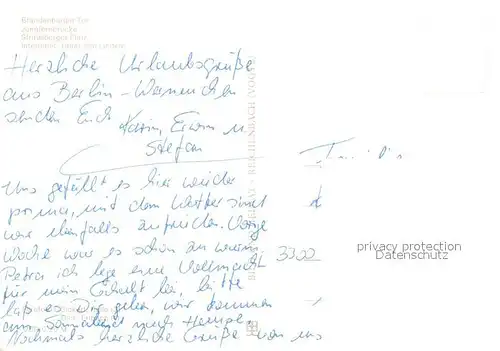 Brandenburger Tor
Jungfernbrücke
Strausberger Platz
Herzliche Urlaubsgrüße
aus Berlin - Werneuchen
senden Euch Karin, Erwin u.
Stefan
Uns gefällt es hier wieder
prima, mit dem Wetter sind
wir ebenfalls zufrieden. Vorige
Woche war es schon zu warm.
Petra ich lege eine Vollmacht
für mein Gehalt bei, bitte
laß es Dir geben, wir kommen
am Sonnabend nach Hause.
Nochmals herzliche Grüße von uns
3300
privacy protection
Datenschutz